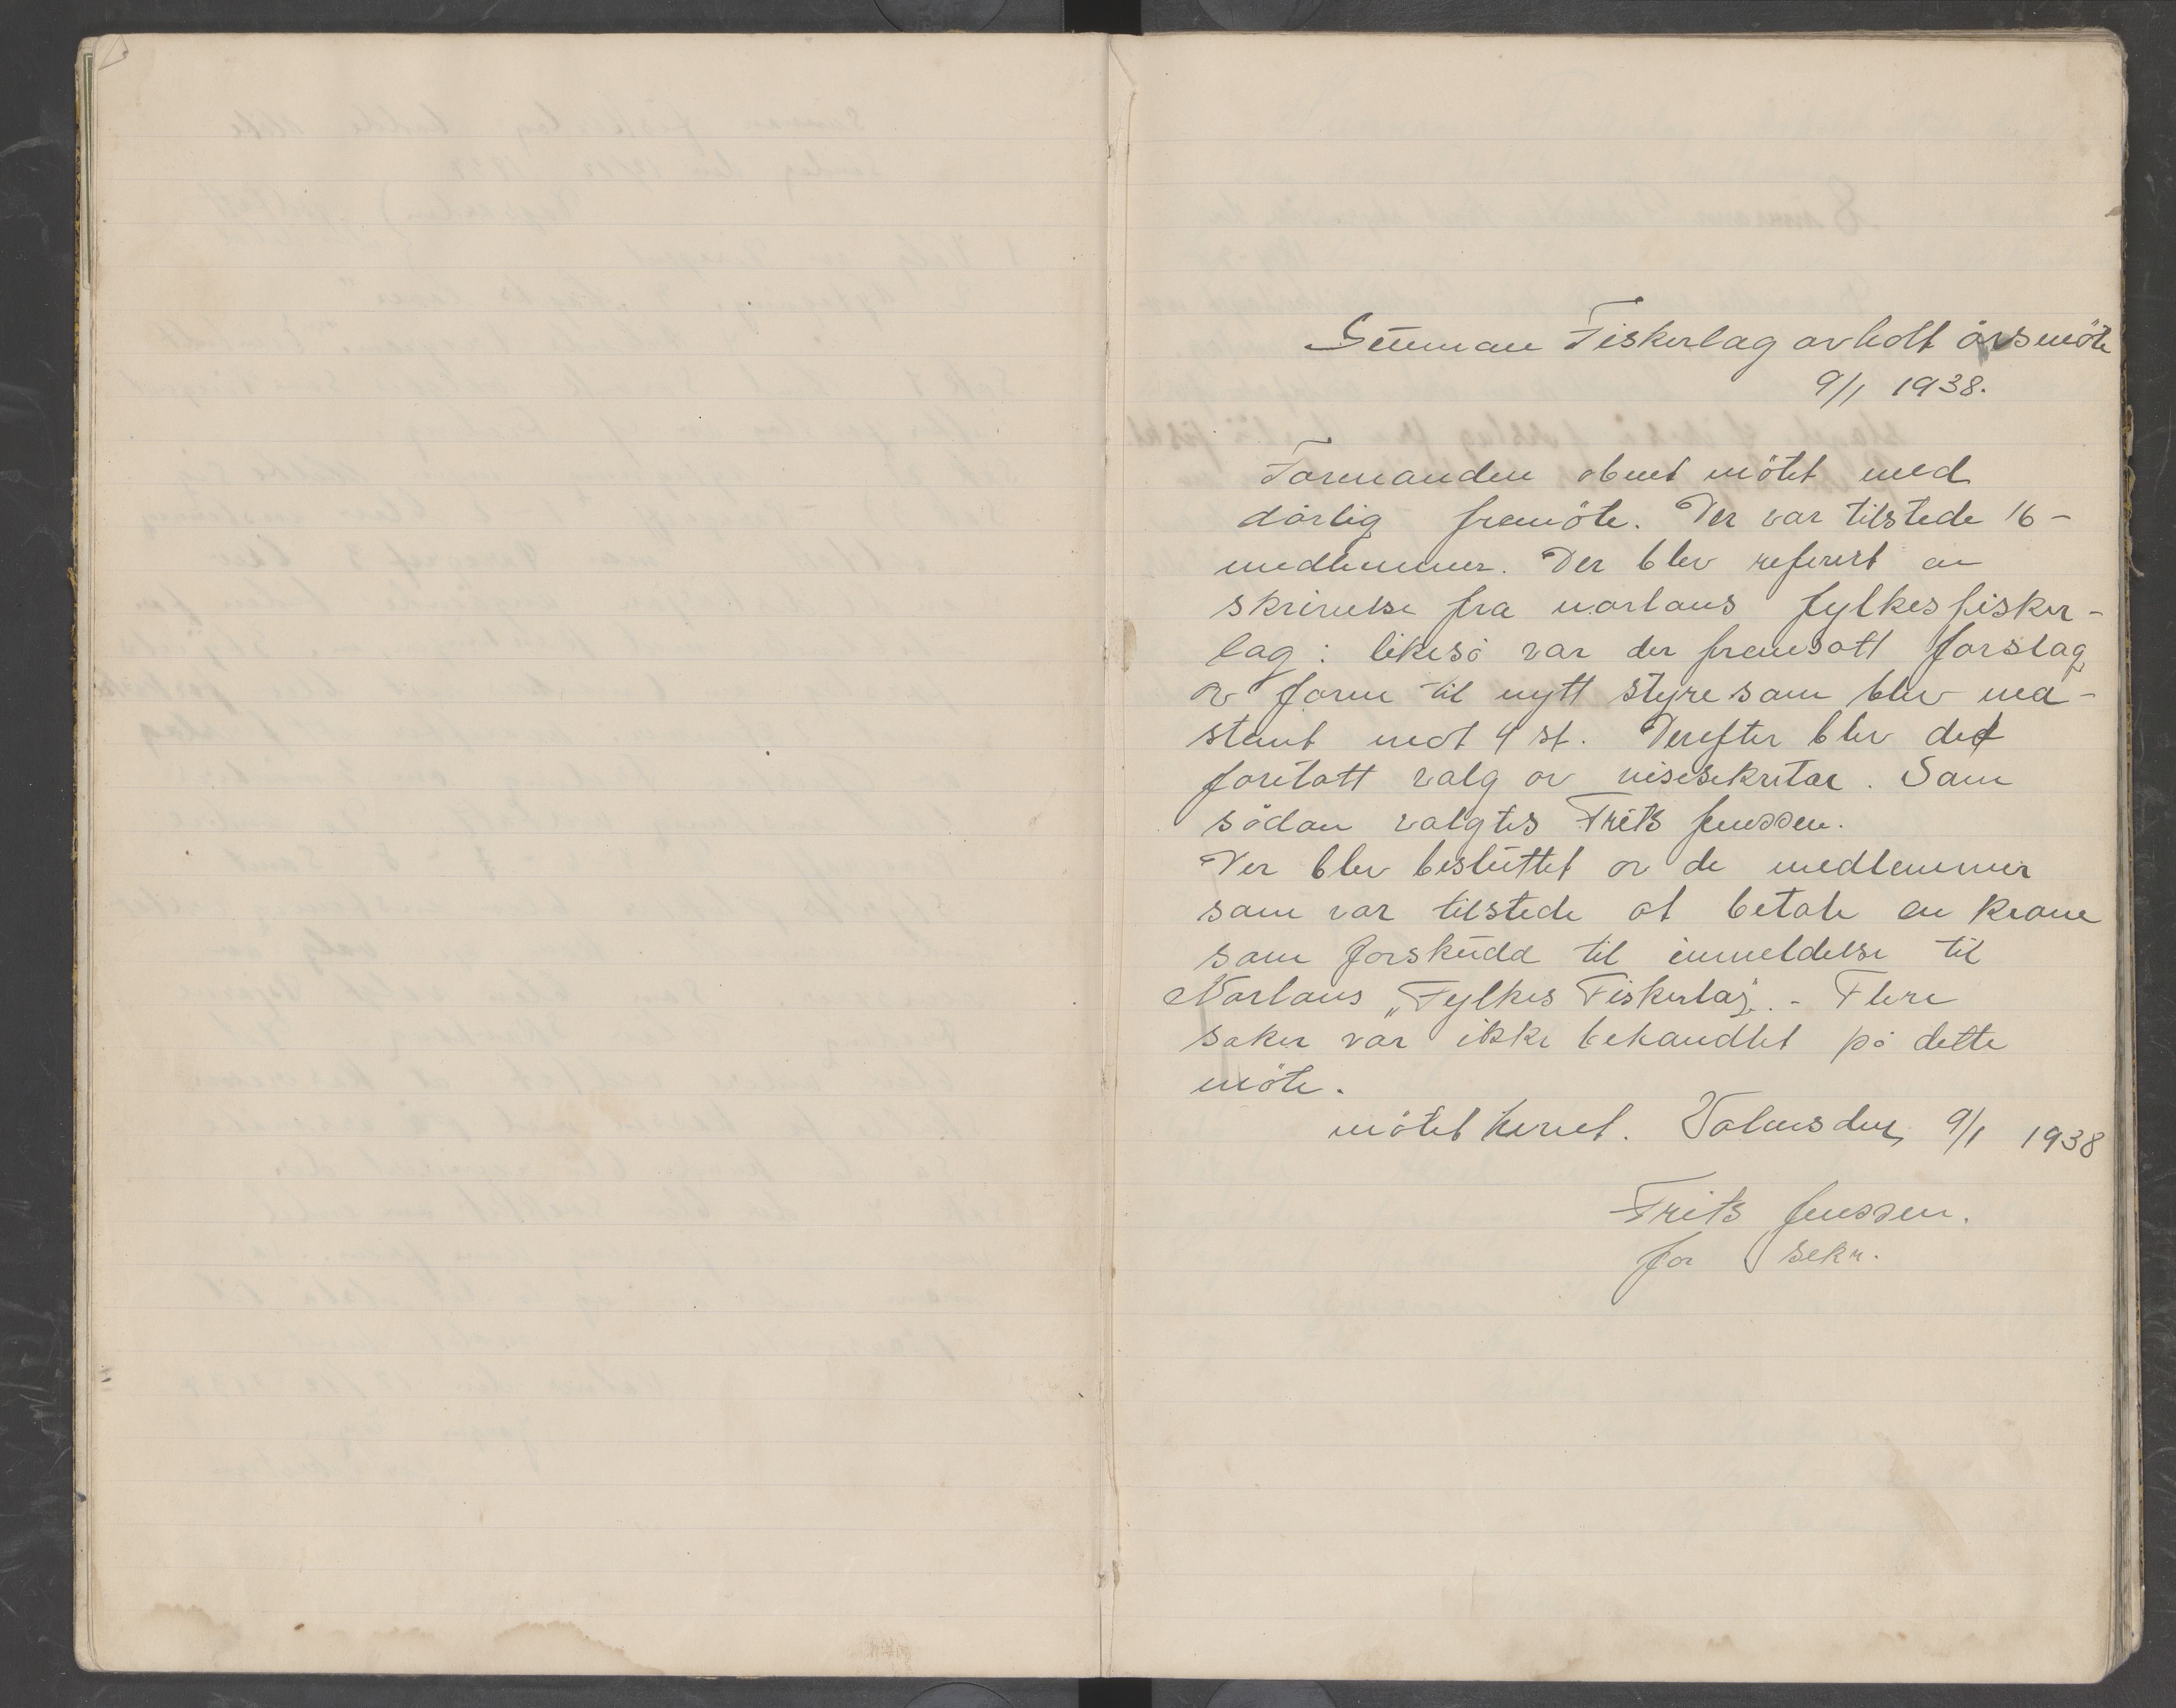 Sünnan Fiskerlag avholt årsmöte
9/1 1938.
Formanden obnet mötet med
dårlig fremöte. Der var tilstede 16-
medlemmer. Der blev referert en
skrivelse fra norlans fylkesfisker-
lag: likeså var der fremsatt forslag
av form til nytt styre som blev ned-
stemt mot 4 st. Derefter blev det
foretatt valg av visesekretar. Som
sådan valgtes Frits Jenssen.
Der blev besluttet av de medlemmer
som var tilstede at betale en krone
som forskudd til inmeldelse til
Norlans „Fylkes Fiskerlag". - Flere
saker var ikke behandlet på dette
möte.
mötet hevet. 9/1 1938
Frits Jenssen.
for sekr.